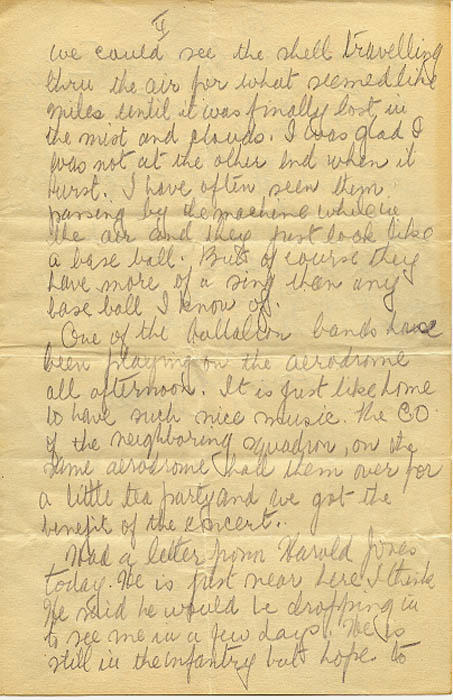 II
we could see the shell travelling
thru the air for what seemed like
miles until it was finally lost in
the mist and clouds. I was glad I
was not at the other end when it
burst. I have often seen them
passing by the machine while in
the air and they just look like
a base ball. But of course they
have more of a sing than any
base ball I know of.
One of the battalion bands have
been playing on the aerodrome
all afternoon. It is just like home
to have such nice music. The CO.
of the neighboring squadron, on the
same aerodrome had them over for
a little tea party and we got the
benefit of the concert.
Had a letter from Harold Jones
today. He is just near here I think
He said he would be dropping in
to see me in a few days. He is
still in the infantry but hope to